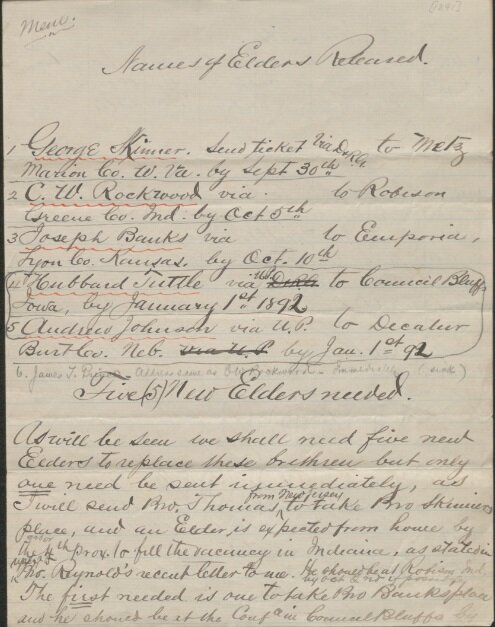 [1891]
Mem.
Names of Elders Released.
1 George Skinner. Send ticket via D. & R.G. to Metz
Marion Co. W. Va. by Sept 30th
2 C. W. Rockwood via to Robison
Greene Co. Ind. by Oct 5th
3 Joseph Banks via to Emporia,
Lyon Co. Kansas, by Oct. 10th
4 Hubbard Tuttle via U.P. to Council Bluffs
Iowa, by January 1st 1892
5 Andrew Johnson via U.P. to Decatur
Burt Co. Neb. via U.P. by Jan. 1st 92
6. James T. address same as C W Rockwood - Immediately (sick)
Five (5) New Elders needed.
As will be seen we shall need five new
Elders to replace these brethren but only
one need be sent immediately, as
I will send Bro. Thomas, from New Jersey to take Bro Skinners
place, and an Elder is expected from home by
the 4th prox. to fill the vacancy in Indiana, as stated in
Reynold's recent letter to me. He should be at Robison Ind.
by Oct 2nd if possible
The first needed is one to take Bro Banks place
and he should be at the Confce in Council Bluffs by